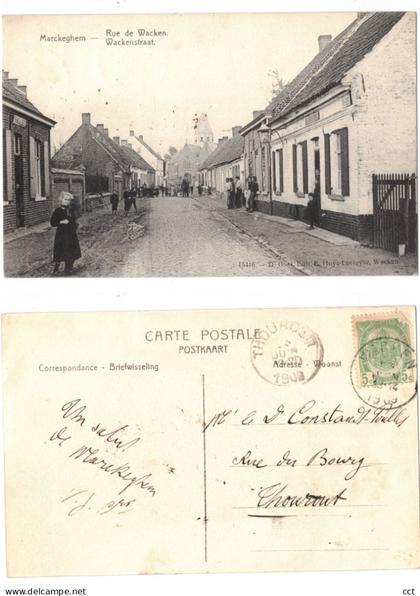 Marckeghem — Rue de Wacken.
Wackenstraat.
15416. — D. Gott, Edit. E. Huys-
Wacken.
CARTE POSTALE
POSTKAART
Correspondance - Briefwisseling
Adresse - Woonst
THOUROUT
5
JUIN
1909
5 JUIN
1909
Un salut
de Marckeghem
Mr le Dr Constant
Rue du Bourg
Thourout